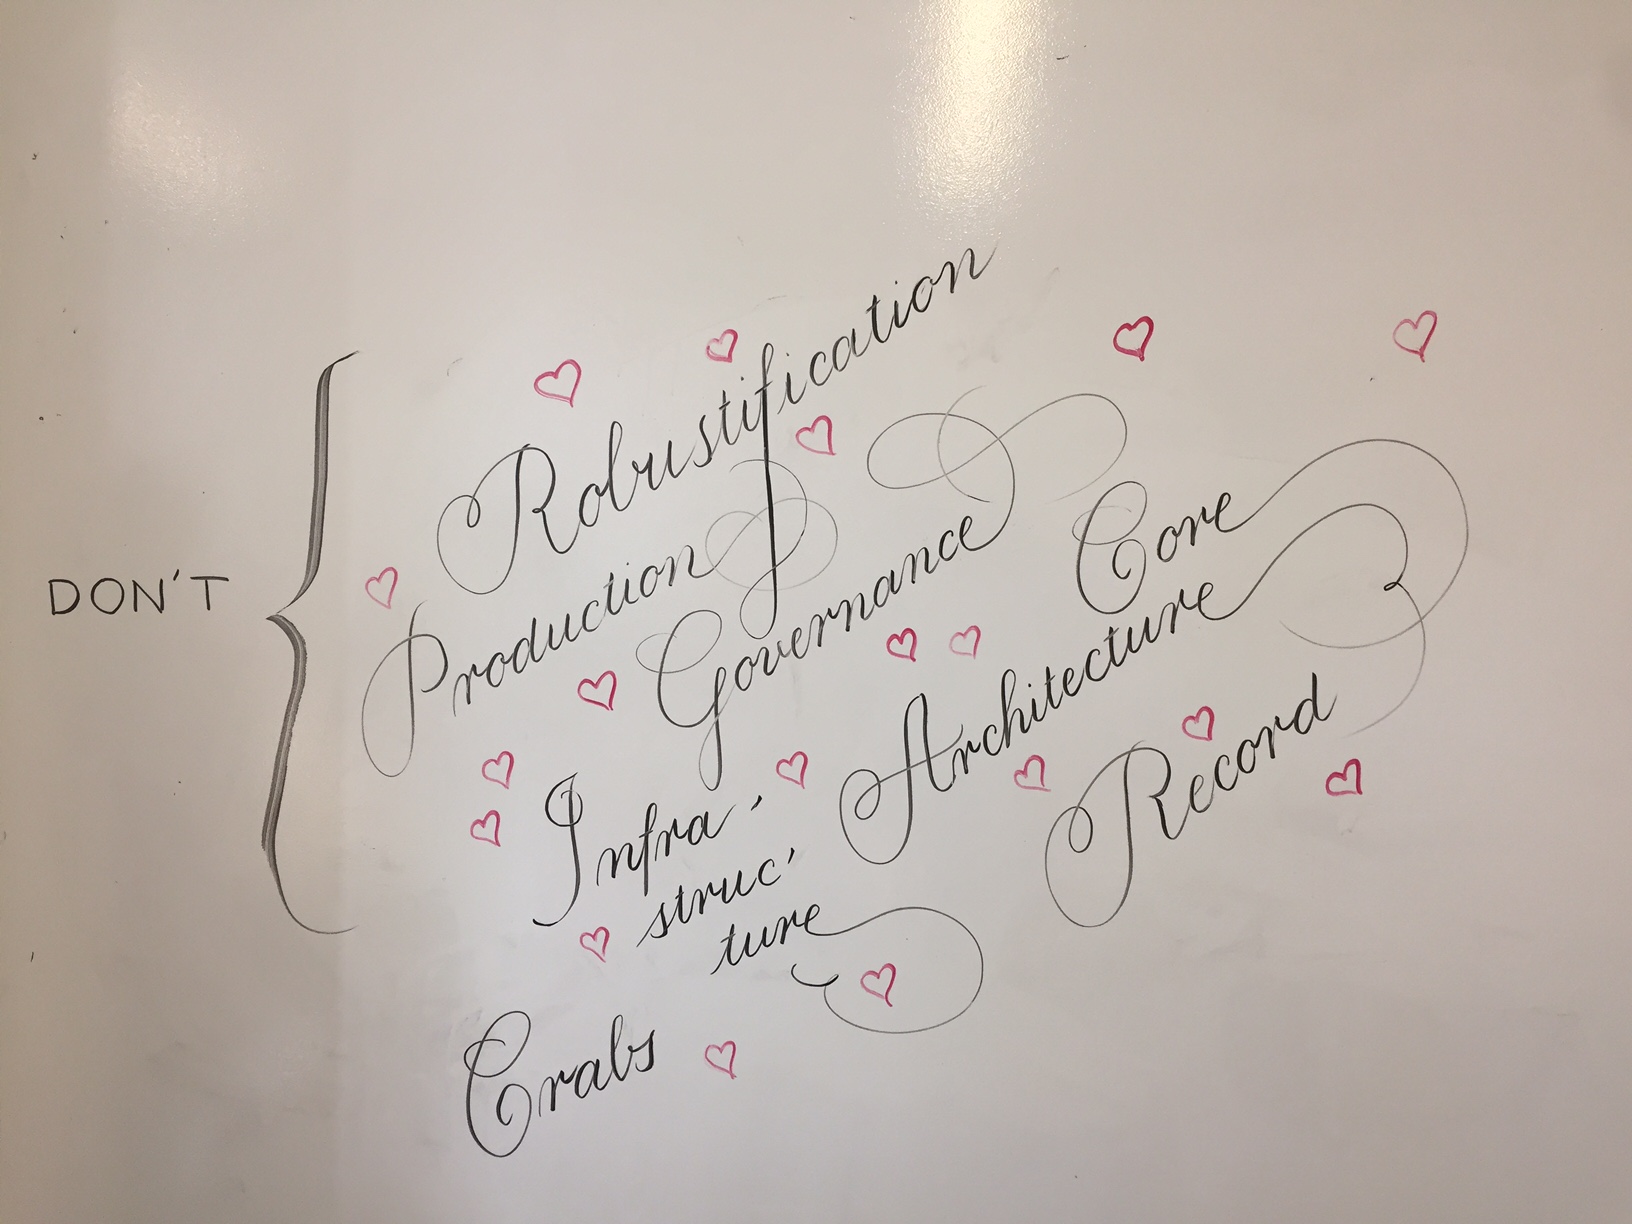 DON'T
Robustification
Production
Governance
Core
Infra-
struc-
ture
Architecture
Record
Crabs